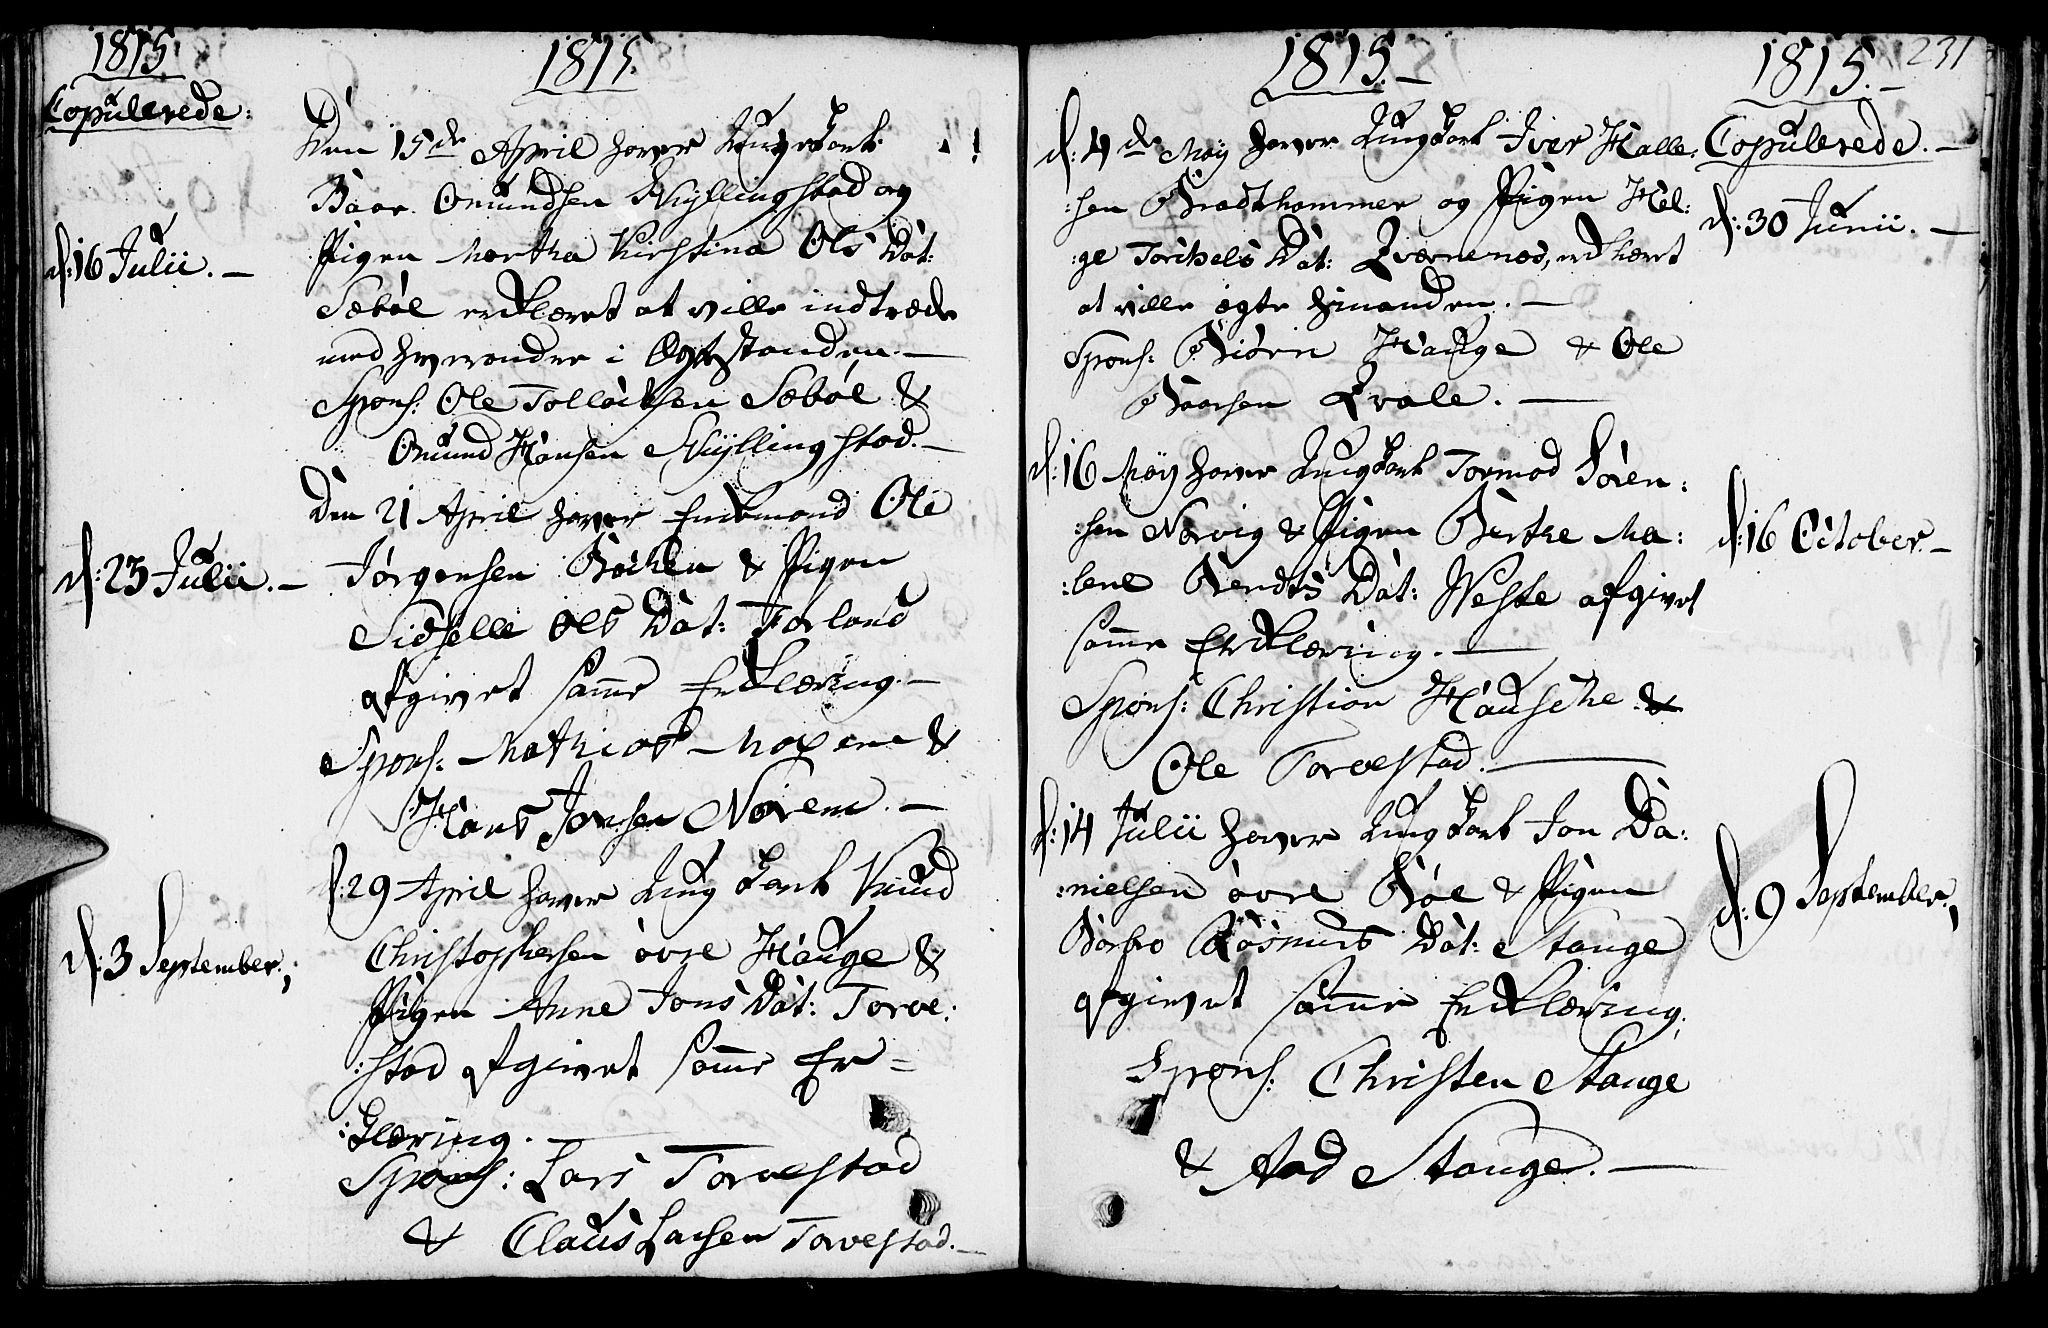 1815
Copulerede:
d: 16 Julii. —
d: 23 Julii. —
d: 3 September.
1815.
Den 15de April haver Ungkarl
Baar Omundsen Kyllingstad og
Pigen Martha Kirstina Ols Dat:
Sæbøe erklæret at ville indtræde
med hverandre i Ægtestanden. —
Spons: Ole Tollachsen Sæbøe &
Omund Hansen Kyllingstad. —
Den 21 April haver Enkemand Ole
Jørgensen Bochn & Pigen
Sidselle Ols Dat: Førland
afgivet samme Erklæring. —
Spons: Mathias &
Hans Jensen Norem. —
d: 29 April haver Ungkarl Knud
Christophersen øvre Hauge &
Pigen Anne Jons Dat: Torve:
:stad afgivet samme Er=
:klæring. —
Spons: Lars Torvestad
& Claus Larsen Torvestad. —
1815. —
d: 4de Maÿ haver Ungkarl Iver Halle:
:sen Bradthammer og Pigen Hel:
:ge Torchels Dat: Qværnenæs, erklæret
at ville ægte hinanden. —
Spons: Biørn Hauge & Ole
Baarsen Qvale. —
d: 16 Maÿ haver Ungkarl Tormod Søren:
:sen Nærvig & Pigen Berthe Ma:
:lene Bendts Dat: Neste afgivet
samme Erklæring. —
Spons: Christian Hausche &
Ole Torvestad. —
d: 14 Julii haver Ungkarl Jon Da:
:nielsen øvre Bøe & Pigen
Barbro Rasmus Dat: Stange
afgivet samme Erklæring.
Spons: Christen Stange
& Aad Stange. —
1815. —
231
Copulerede. —
d: 30 Junii. —
d: 16 October. —
d: 9 September.